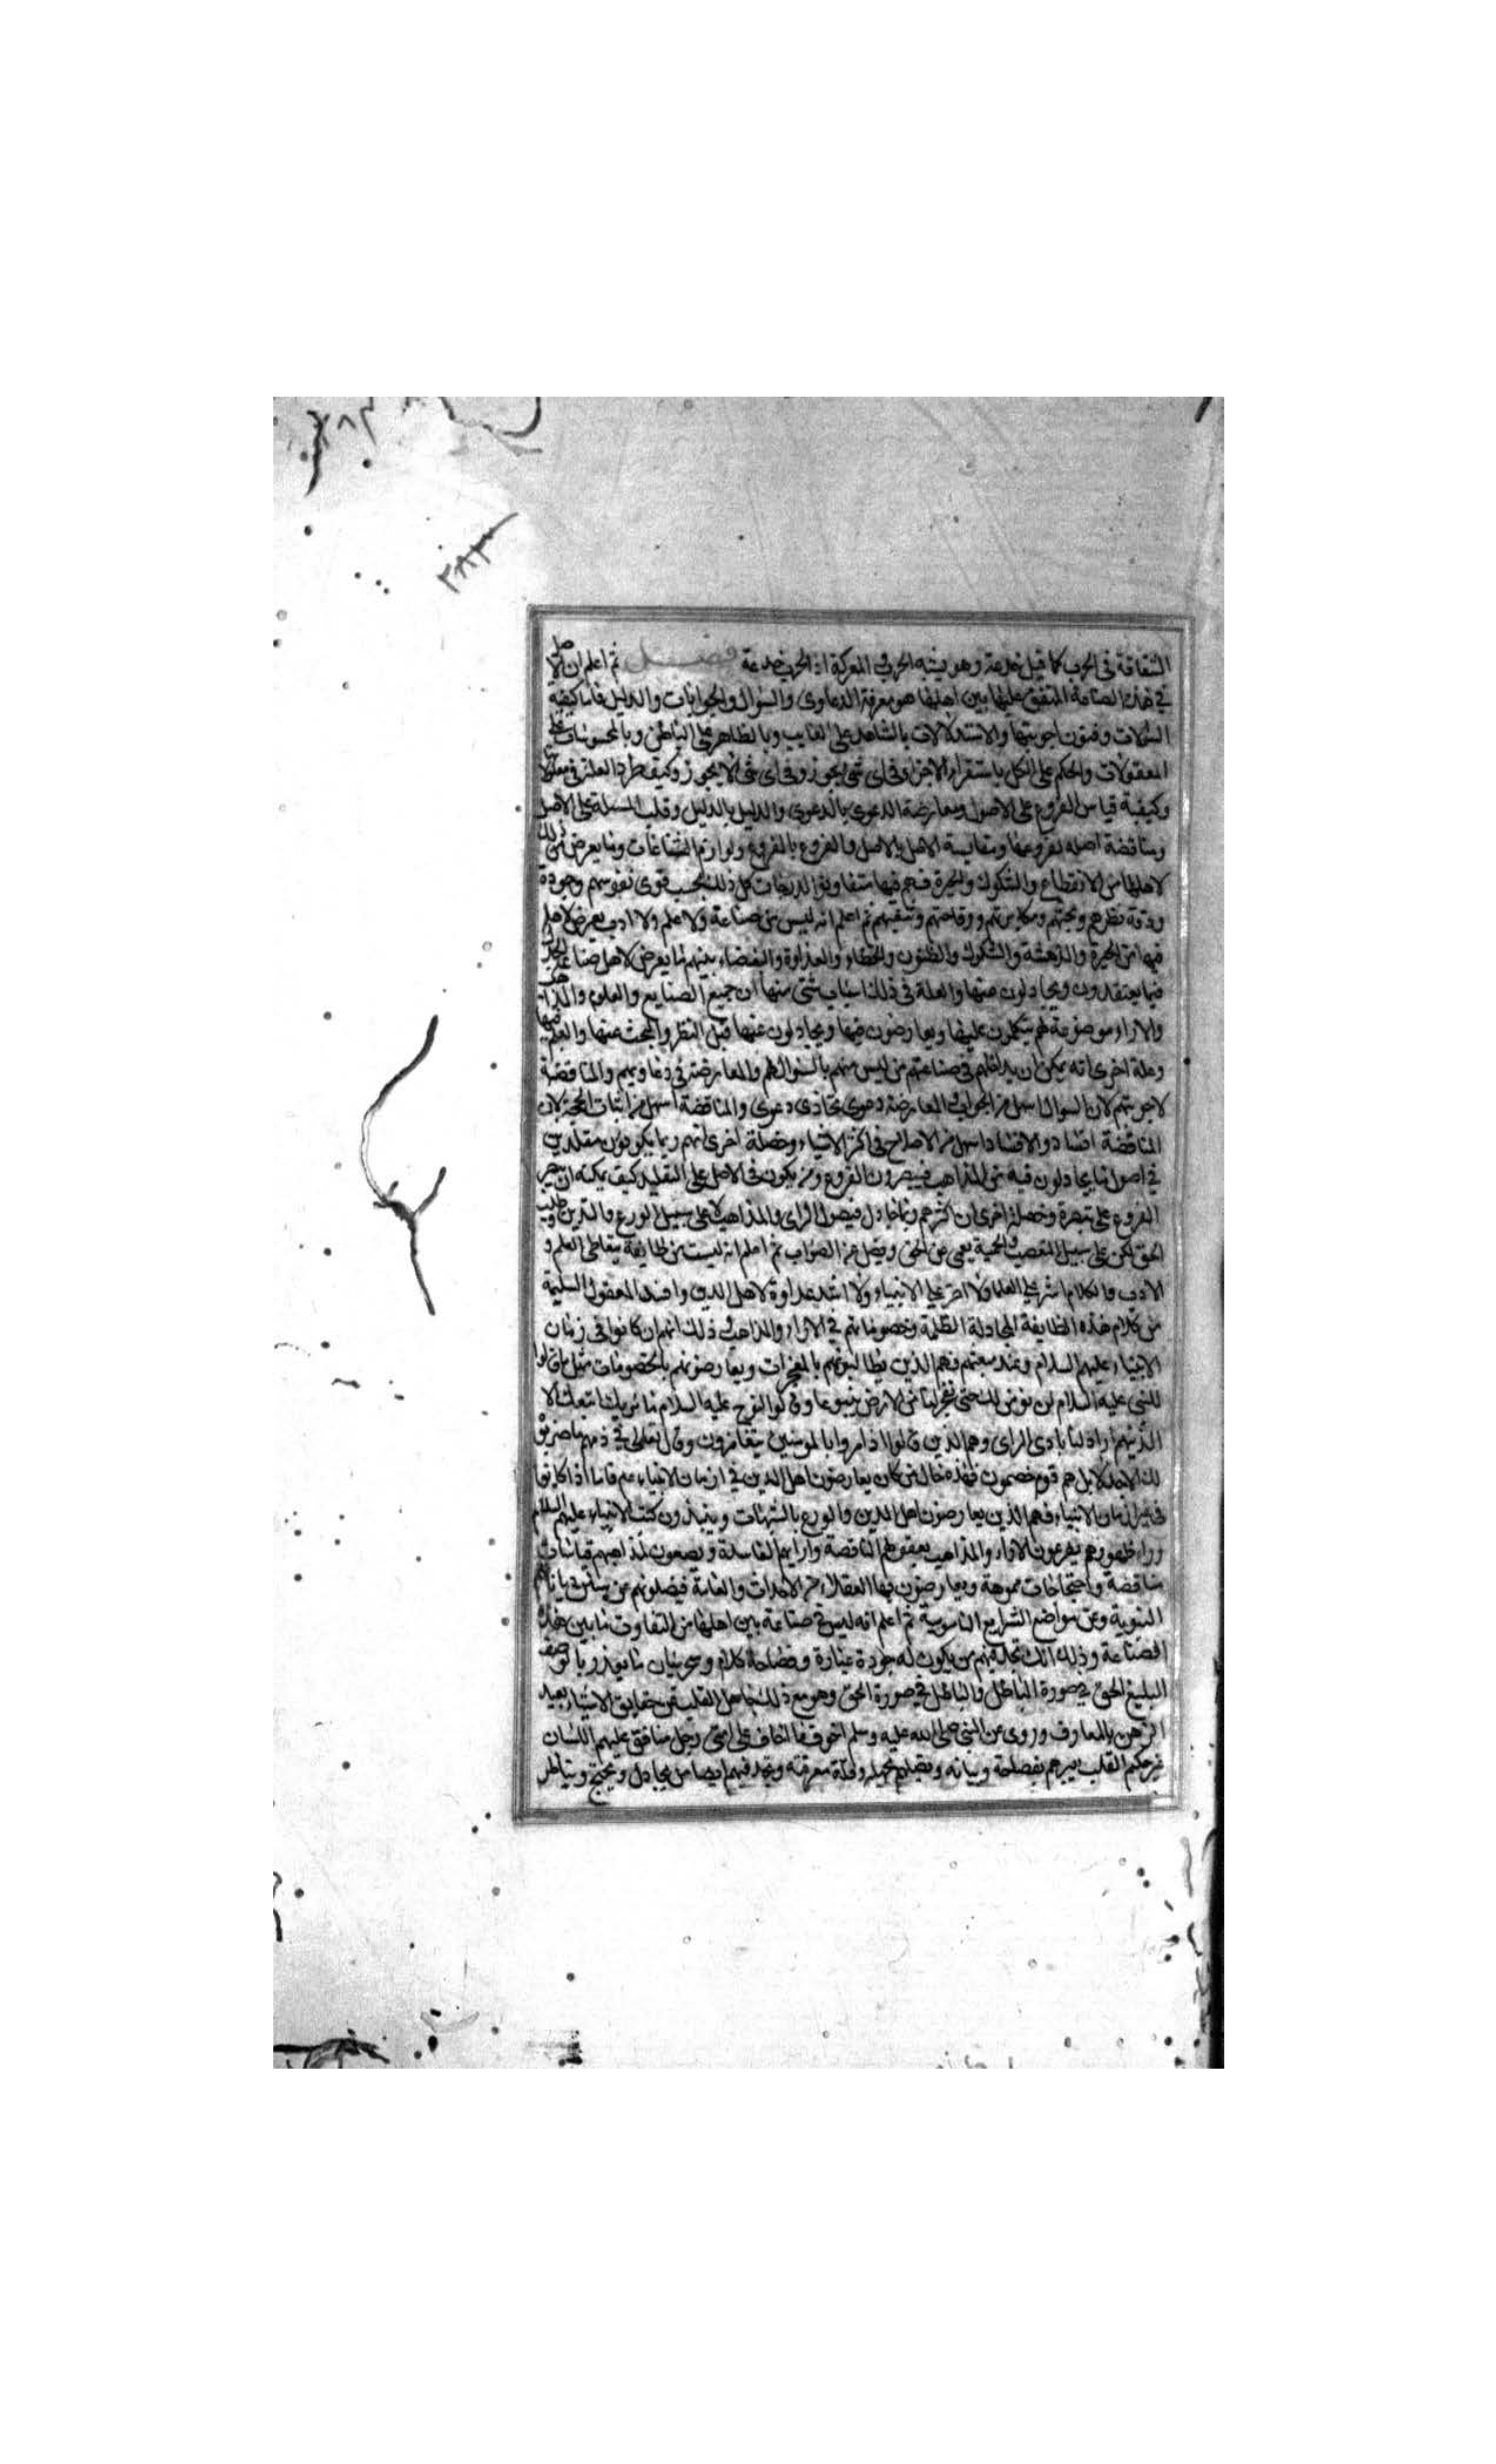 ٢٨٣
الثقافة فى الحرب كما قيل خدعة وهو يشبه الحرب فى المعركة اذ الحرب خدعة فصل ثم اعلم ان الاصل
فى هذه الصناعة المتفق عليها بين اهلها هو معرفة الدعاوى والسؤال والجوابات والدليل فاما كيفية
السؤالات وفنون اجوبتها والاستدلالات بالشاهد على الغايب وبالظاهر على الباطن وبالمحسوسات على
المعقولات والحكم على الكل باستقراء الاجزا وفى اى شى يجوز وفى اى شى لا يجوز وكيف طرد العلة فى معلولاتها
وكيفية قياس الفروع على الاصول ومعارضة الدعوى بالدعوى والدليل بالدليل وقلب المسئلة على الاصل
ومناقضة اصله بفروعها ومقايسة الاصل بالاصل والفروع بالفروع ولوازم الشناعات وما يعرض من ذلك
لاهلها من الانقطاع والشكوك والحيرة فهم فيها متفاوتوا الدرجات كل ذلك بحسب قوى نفوسهم وجودة
ودقة نظرهم وبحثهم ومكابرتهم ووقاحتهم وشغبهم ثم اعلم انه ليس من صناعة ولا علم ولا ادب يعرض لاهل
فيها من الحيرة والدهشة والشكوك والظنون والخطاء والعداوة والبغضاء بينهم ما يعرض لاهل صناعة الجدل
فيما يعتقدون ويجادلون عنها والعلة فى ذلك اسباب شتى منها ان جميع الصنايع والعلوم والمذاهب
والاراء موضوعة لهم يتكلمون عليها ويعارضون فيها ويجادلون عنها قبل النظر والبحث عنها والعلم فيها
وعلة اخرى انه يمكن ان يداخلهم فى صناعتهم من ليس منهم بالسؤال لهم والمعارضة فى دعاويهم والمناقضة
لاجوبتهم لان السوال اسهل من الجواب فى المعارضة دعوى تحاذى دعوى والمناقضة اسهل من اثبات الحجة لان
المناقضة افساد والافساد اسهل من الاصلاح فى اكثر الاشياء وخصلة اخرى انهم ربما يكونون مقلدين
فى اصول ما يجادلون فيه من المذاهب فينصرون الفروع ومن يكون فى الاصل على التقليد كيف يمكنه ان
الفروع على تبصرة وخصلة اخرى ان اكثرهم ربما يجادل فينصر الراى والمذاهب لا على سبيل الورع والتدين وطلب
الحق لكن على سبيل التعصب والحمية يعمى عن الحق ويضل عن الصواب ثم اعلم انه ليست من طايفة يتعاطى العلم و
الادب والكلام اشر على العلماء ولا اضر على الانبياء ولا اشد عداوة لاهل الدين وافسد المعقول السليمة
من كلام هذه الطايفة المجادلة الظلمة وخصوماتهم فى الاراء والمذاهب وذلك انهم ان كانوا فى زمان
الانبياء عليهم السلام وعند مبعثهم فهم الذين يطالبونهم بالمعجزات ويعارضونهم بالخصومات مثل ما قالوا
للنبى عليه السلام لن نومن لك حتى تفجر لنا من الارض ينبوعا وقالوا لنوح عليه السلام ما نريك اتبعك الا
الذين هم اراذلنا بادى الراى وهم الذين قالوا اذا مروا بالمومنين يتغامزون وقال تعالى فى ذمهم ما ضربوه
لك الا جدلا بل هم قوم خصمون فهذه حال من كان يعارضون اهل الدين فى ازمان الانبياء عم فاما اذا كانوا
فى غير ازمان الانبياء فهم الذين يعارضون اهل الدين والورع بالشبهات وينبذون كتب الانبياء عليهم السلام
وراء ظهورهم يفرعون الاراء والمذاهب بعقولهم الناقصة وارايهم الفاسدة ويضعون لمذاهبهم قياسات
متناقضة واحتجاجات مموهة ويعارضون بها العقلاء من الاحداث والعامة فيضلونهم عن سنن دياناتهم
النبوية وعن مواضع الشرايع الناموسية ثم اعلم انه ليس فى صناعة بين اهلها من التفاوت ما بين هذه
الصناعة وذلك انك تجد فيهم من يكون له جودة عبارة وفصاحة كلام وسحر بيان ما يقدر بالوصف
البليغ الحق فى صورة الباطل والباطل فى صورة الحق وهو مع ذلك جاهل القلب عن حقايق الاشياء بعيد
الذهن بالمعارف وروى عن النبى صلى الله عليه وسلم اخوف ما اخاف على امتى رجل منافق عليم اللسان
غير حكيم القلب يبهرهم بفصاحته وبيانه ويضلهم بجهله وقلة معرفته وتجد فيهم ايضا من يجادل ويحتج ويناظر